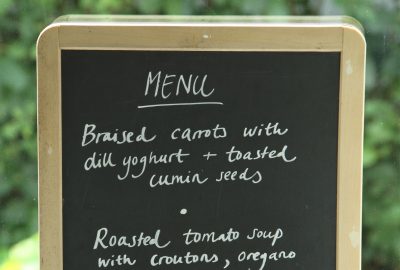 MENU
Braised carrots with
dill yoghurt + toasted
cumin seeds
•
Roasted tomato soup
with croutons, oregano